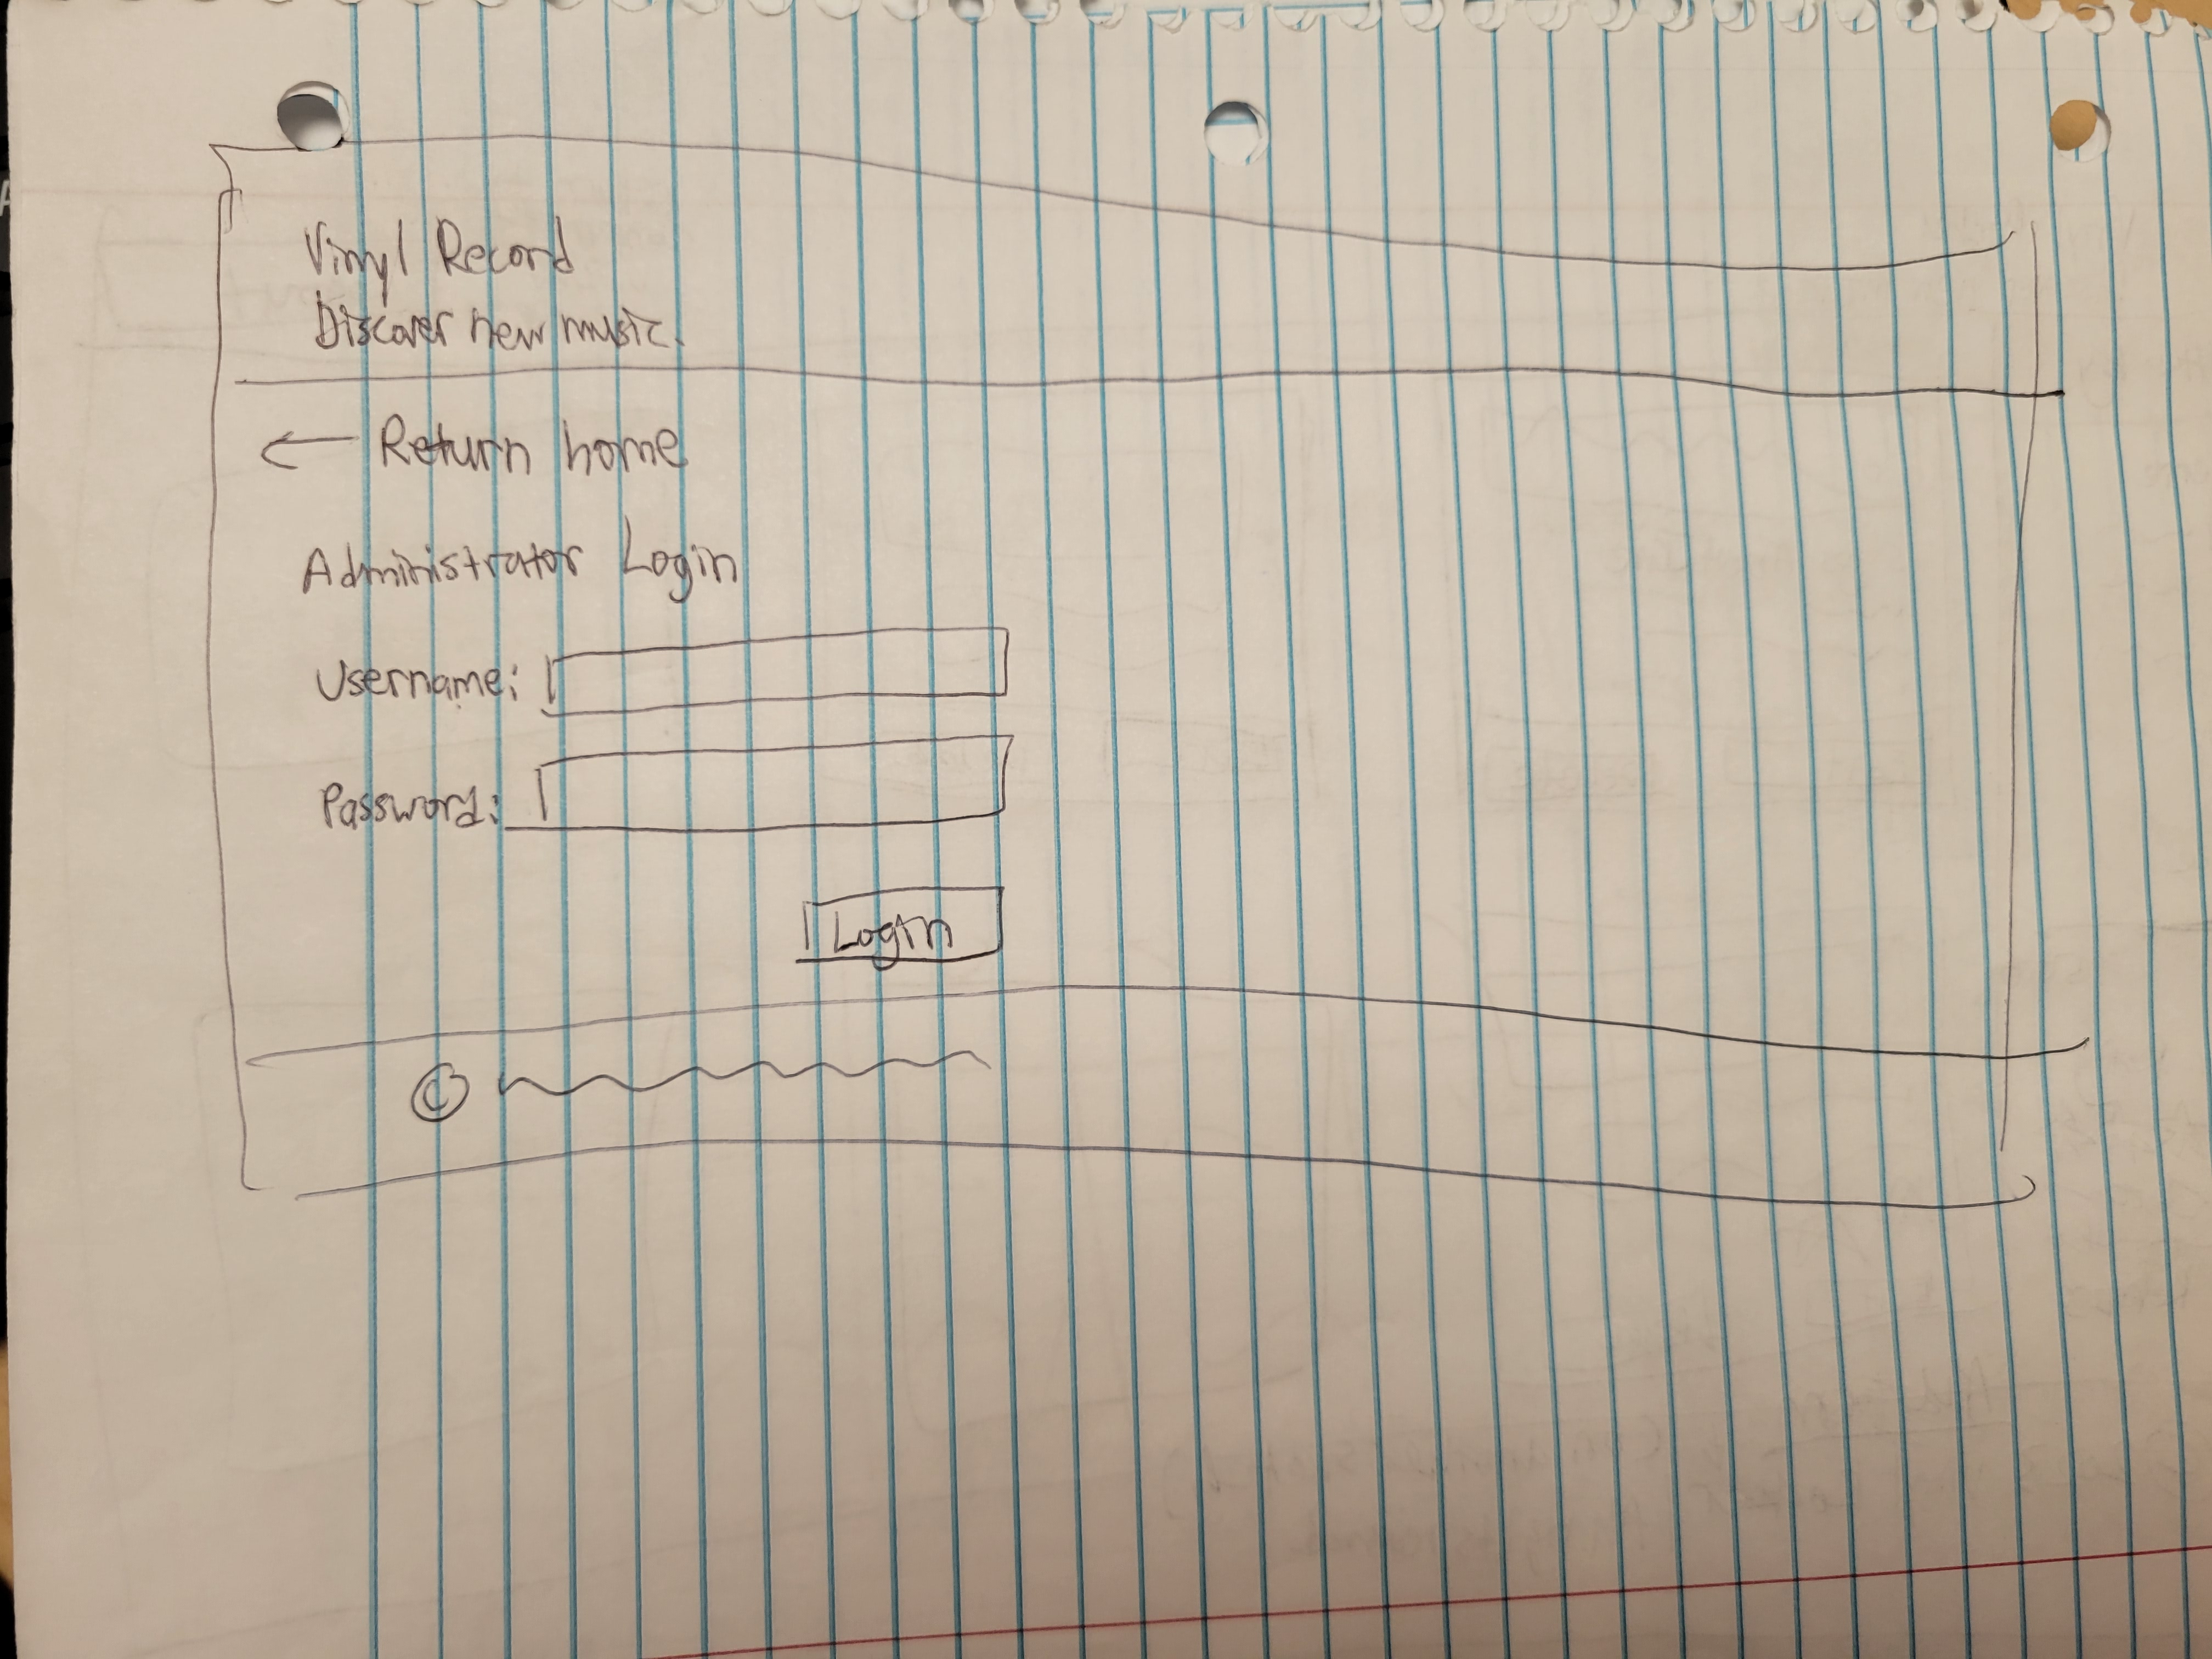 Vinyl Record
Discover new music.
← Return home
Administrator Login
Username:
Password:
Login
©